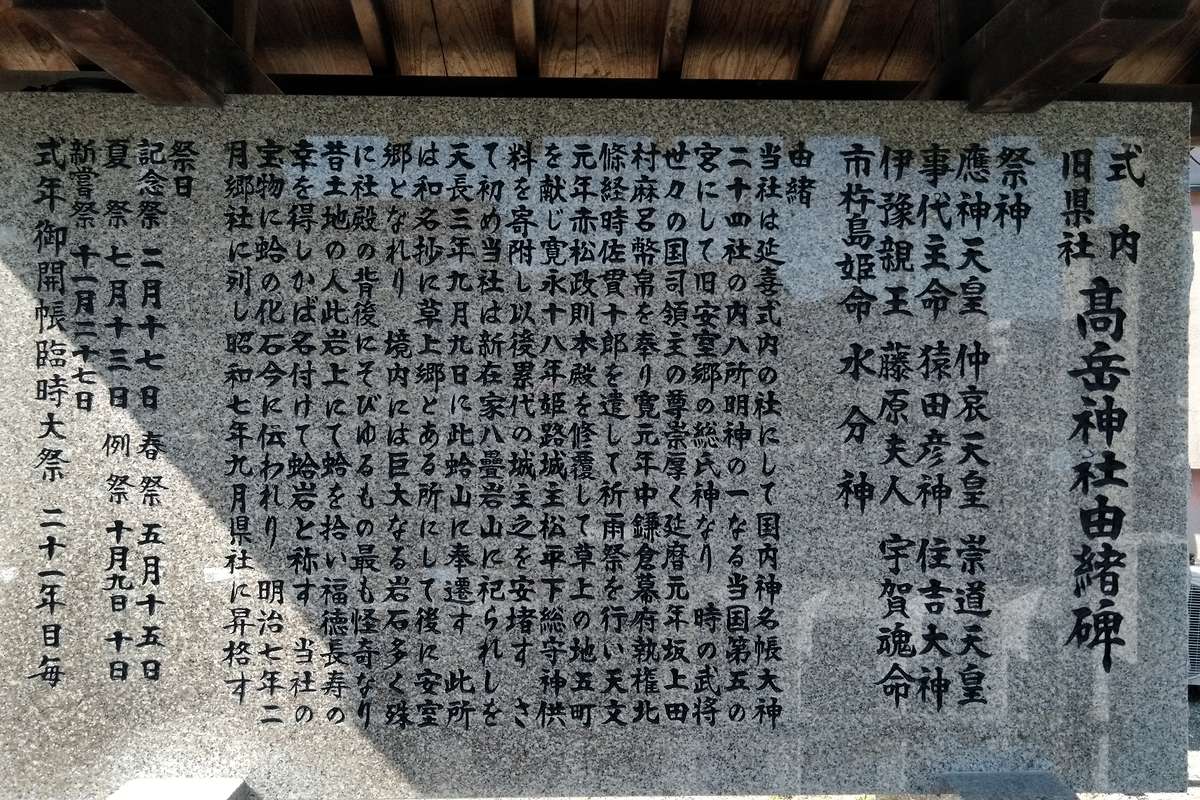 式内
旧県社
髙岳神社由緒碑
祭神
應神天皇 仲哀天皇 崇道天皇
事代主命 猿田彦神 住吉大神
伊豫親王 藤原夫人 宇賀魂命
市杵島姫命 水分神
由緒
当社は延喜式内の社にして国内神名帳大神
二十四社の内八所明神の一なる当国第五の
宮にして旧安室郷の総氏神なり 時の武将
世々の国司領主の尊崇厚く延暦元年坂上田
村麻呂幣帛を奉り寛元年中鎌倉幕府執権北
條経時佐貫十郎を遣して祈雨祭を行い天文
元年赤松政則本殿を修覆して草上の地五町
を献じ寛永十八年姫路城主松平下総守神供
料を寄附し以後累代の城主之を安堵す さ
て初め当社は新在家八疊岩山に祀られしを
天長三年九月九日に此蛤山に奉遷す 此所
は和名抄に草上郷とある所にして後に安室
郷となれり 境内には巨大なる岩石多く殊
に社殿の背後にそびゆるもの最も怪奇なり
昔土地の人此岩上にて蛤を拾い福徳長寿の
幸を得しかば名付けて蛤岩と称す 当社の
宝物に蛤の化石今に伝われり 明治七年二
月郷社に列し昭和七年九月県社に昇格す
祭日
記念祭 二月十七日 春祭 五月十五日
夏祭 七月十三日 例祭 十月九日 十日
新嘗祭 十一月二十七日
式年御開帳臨時大祭 二十一年目毎